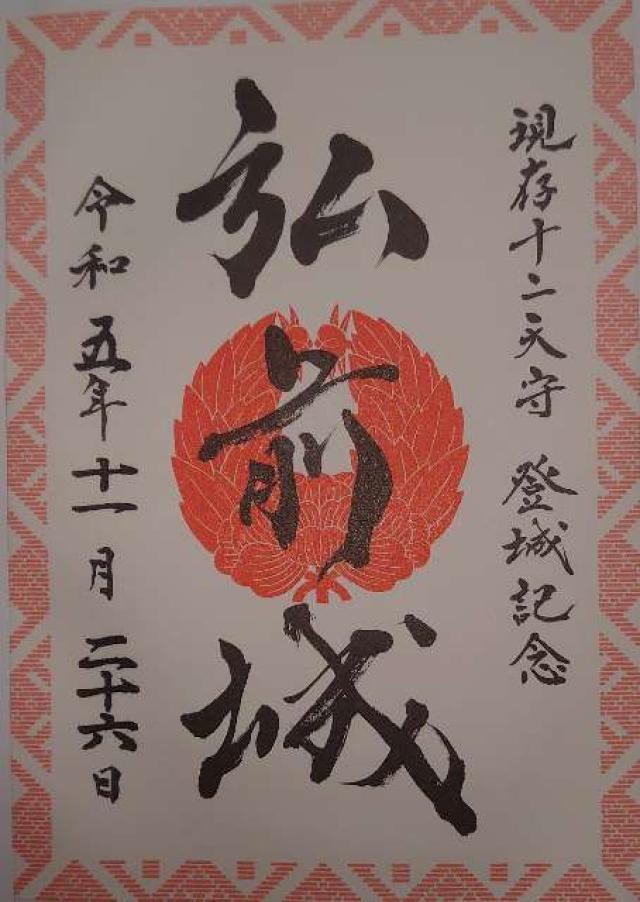 現存十二天守 登城記念
弘前城
令和五年十一月二十六日